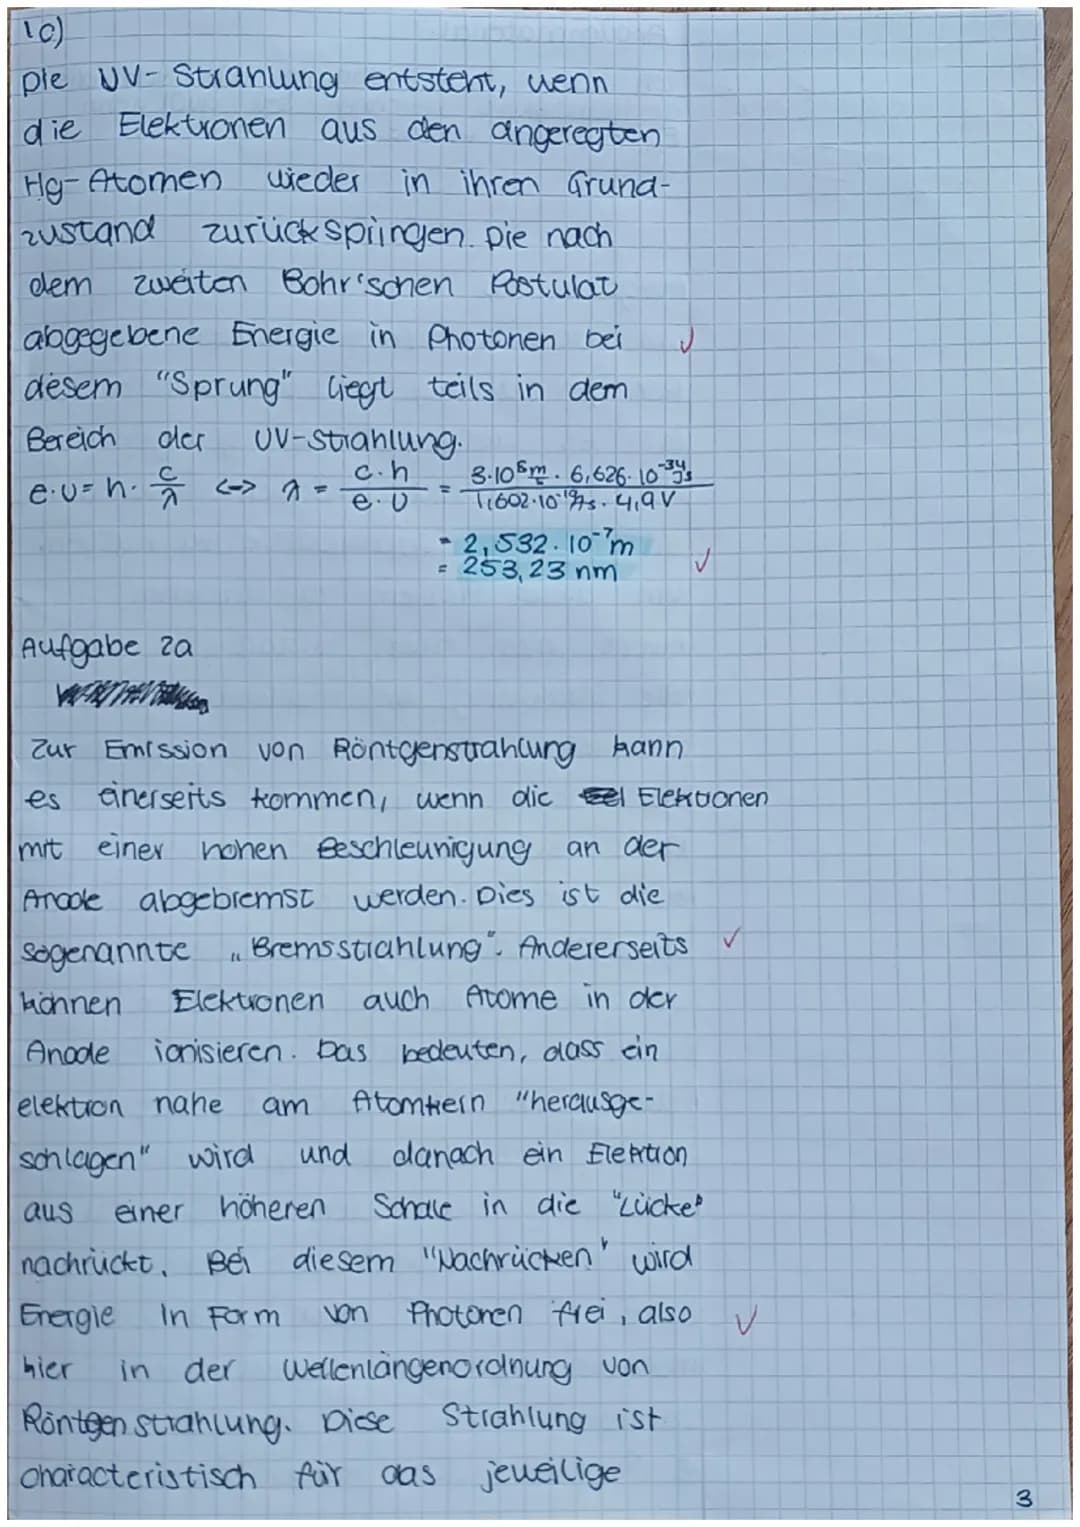 1c)
Die UV-Strahlung entsteht, wenn
die Elektronen aus den angeregten
Hg-Atomen wieder in ihren Grund-
zustand zurückspringen. Die nach
dem zweiten Bohr'schen Postulat
abgegebene Energie in Photonen bei
desem "Sprung" liegt teils in dem
Bereich der UV-Strahlung.
e·U = h · c/λ <-> λ = c·h / e·U = 3·10^8 m/s · 6,626·10^-34 Js / 1,602·10^-19 As · 4,9 V
= 2,532·10^-7 m
= 253,23 nm
Aufgabe 2a
Zur Emission von Röntgenstrahlung kann
es einerseits kommen, wenn die Elektronen
mit einer hohen Beschleunigung an der
Anode abgebremst werden. Dies ist die
sogenannte „Bremsstrahlung". Andererseits
können Elektronen auch Atome in der
Anode ionisieren. Das bedeuten, dass ein
elektron nahe am Atomkern "herausge-
schlagen" wird und danach ein Elektron
aus einer höheren Schale in die "Lücke"
nachrückt. Bei diesem "Nachrücken" wird
Energie in Form von Photonen frei, also
hier in der Wellenlängenordnung von
Röntgenstrahlung. Diese Strahlung ist
characteristisch für das jeweilige
3